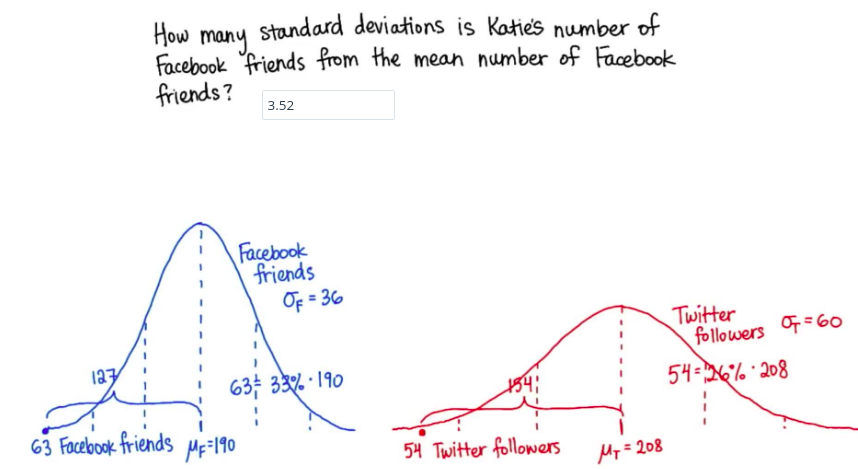 How many standard deviations is Katie's number of
Facebook friends from the mean number of Facebook
friends?
3.52
Facebook
friends
σF = 36
127
63 = 33% · 190
63 Facebook friends μF=190
Twitter
followers σT = 60
154
54 = 26% · 208
54 Twitter followers μT = 208